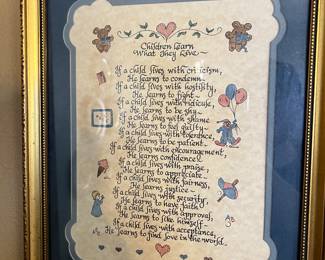 Children Learn
What They Live~
If a child lives with criticism,
He learns to condemn.
If a child lives with hostility,
He learns to fight~
If a child lives with ridicule,
He learns to be shy~
If a child lives with shame
He learns to feel guilty~
If a child lives with tolerance,
He learns to be patient~
If a child lives with encouragement,
He learns confidence.
If a child lives with praise,
He learns to appreciate~
If a child lives with fairness,
He learns justice~
If a child lives with security,
He learns to have faith~
If a child lives with approval,
He learns to like himself~
If a child lives with acceptance,
He learns to find love in the world~